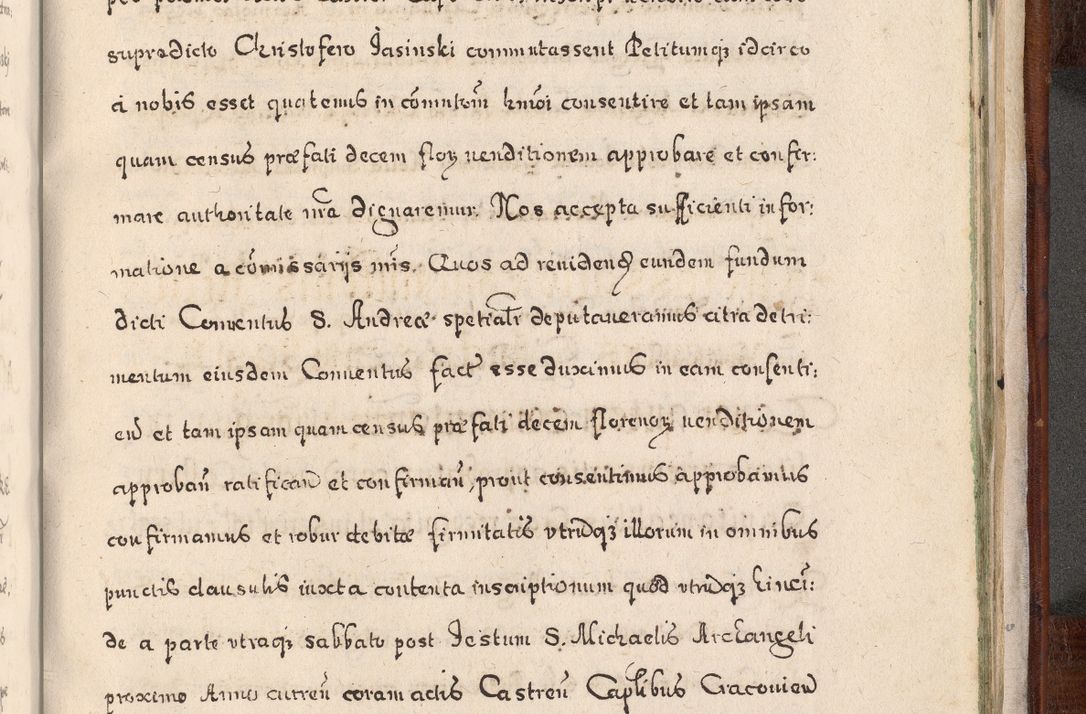 supradicto Christofero Jasinski commutassent Petitumqꝫ idcirco
a nobis esset quatenus in cōmutōm hmōi consentire et tam ipsam
quam census præfati decem floꝝ uenditionem approbare et confir:
mare authoritate nrā dignaremur. Nos accepta sufficienti infor:
matione a cōmissarijs nrīs. Quos ad reuidenđ eundem fundum
dicti Conuentus S. Andreæ spetialr deputaueramus citra detri:
mentum eiusdem Conuentus fact esse duximus in eam consenti:
eñ et tam ipsam quam census præfati decem florenoꝝ uenditionem
approbañ ratificañ et confirmañ, prout consentimus approbamus
confirmamus et robur debitæ firmitatis vtriqꝫ illorum in omnibus
punctis clausulis iuxta contenta inscriptionum quod vtriqꝫ hinci:
de a parte vtraqꝫ sabbato post Festum S. Michaelis Archangeli
proximo Anno curreñ coram actis Castreñ Caplibus Cracouieñ